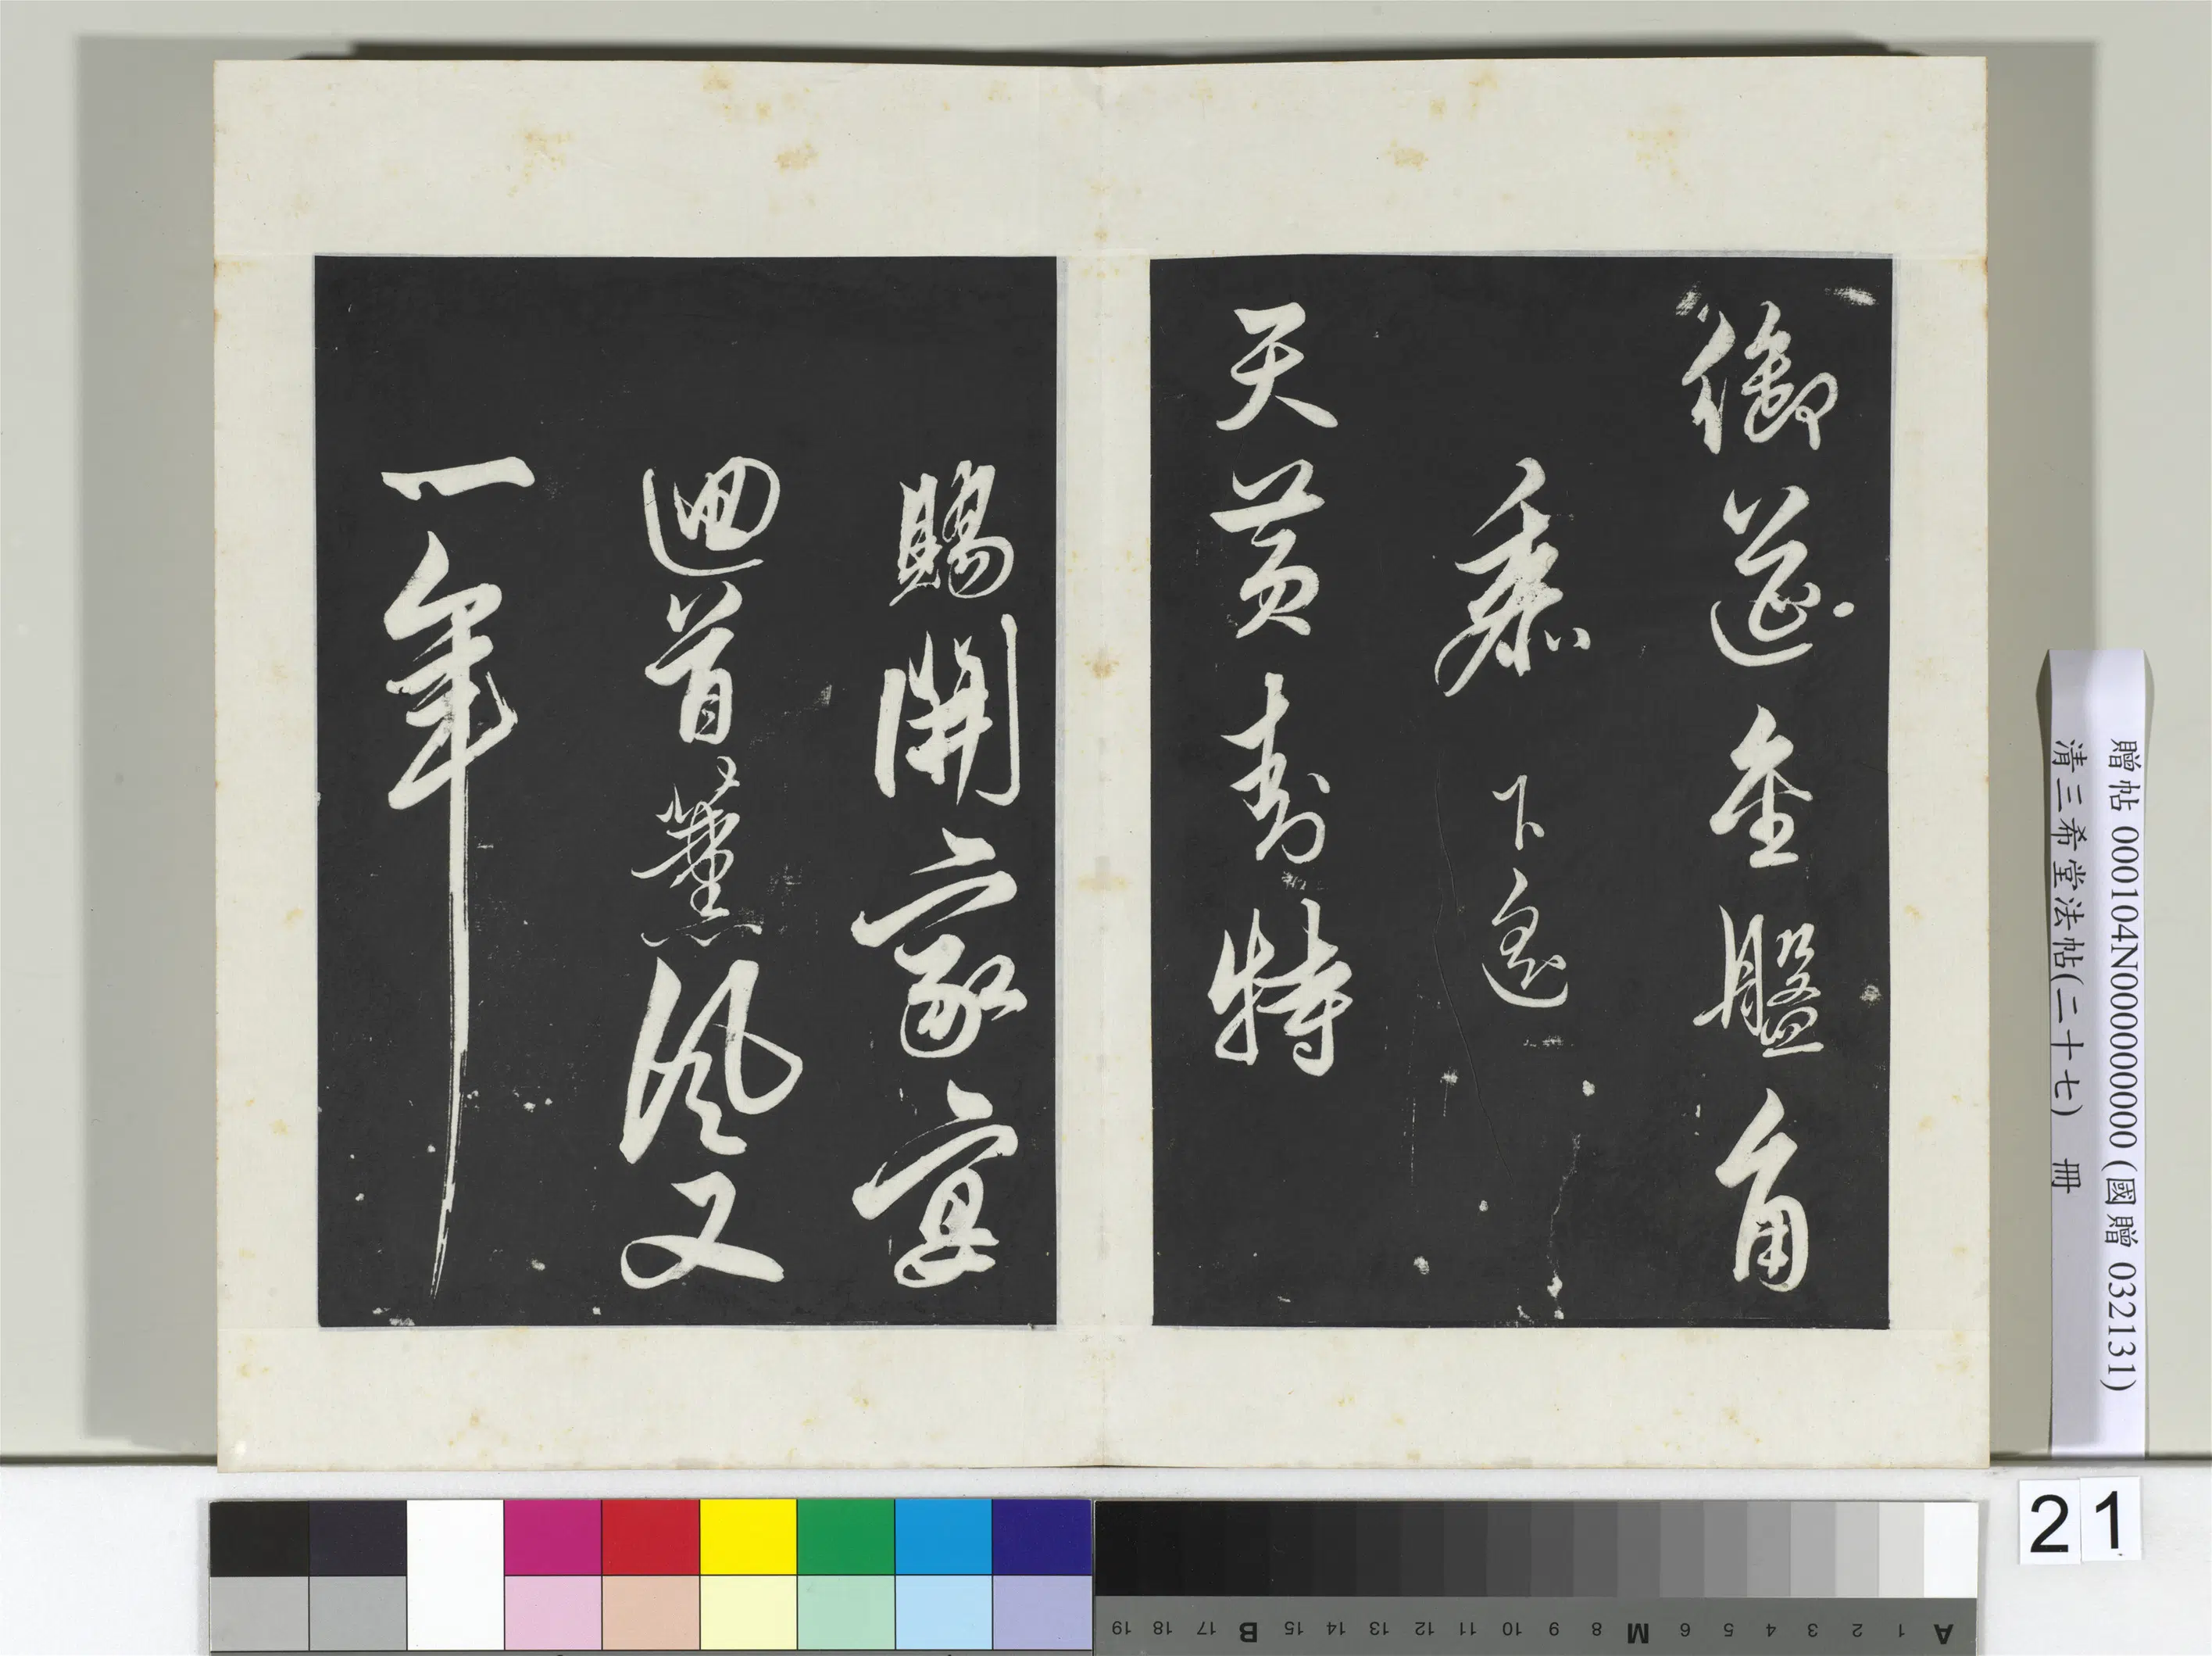 御筵金盤角
黍下遙
天黃封特
賜開家宴
迴首薰風又
一年
贈帖 000104N000000000 (國贈 032131)
清三希堂法帖(二十七) 冊
21
A 1 2 3 4 5 6 M 8 9 10 11 12 13 14 15 B 17 18 19